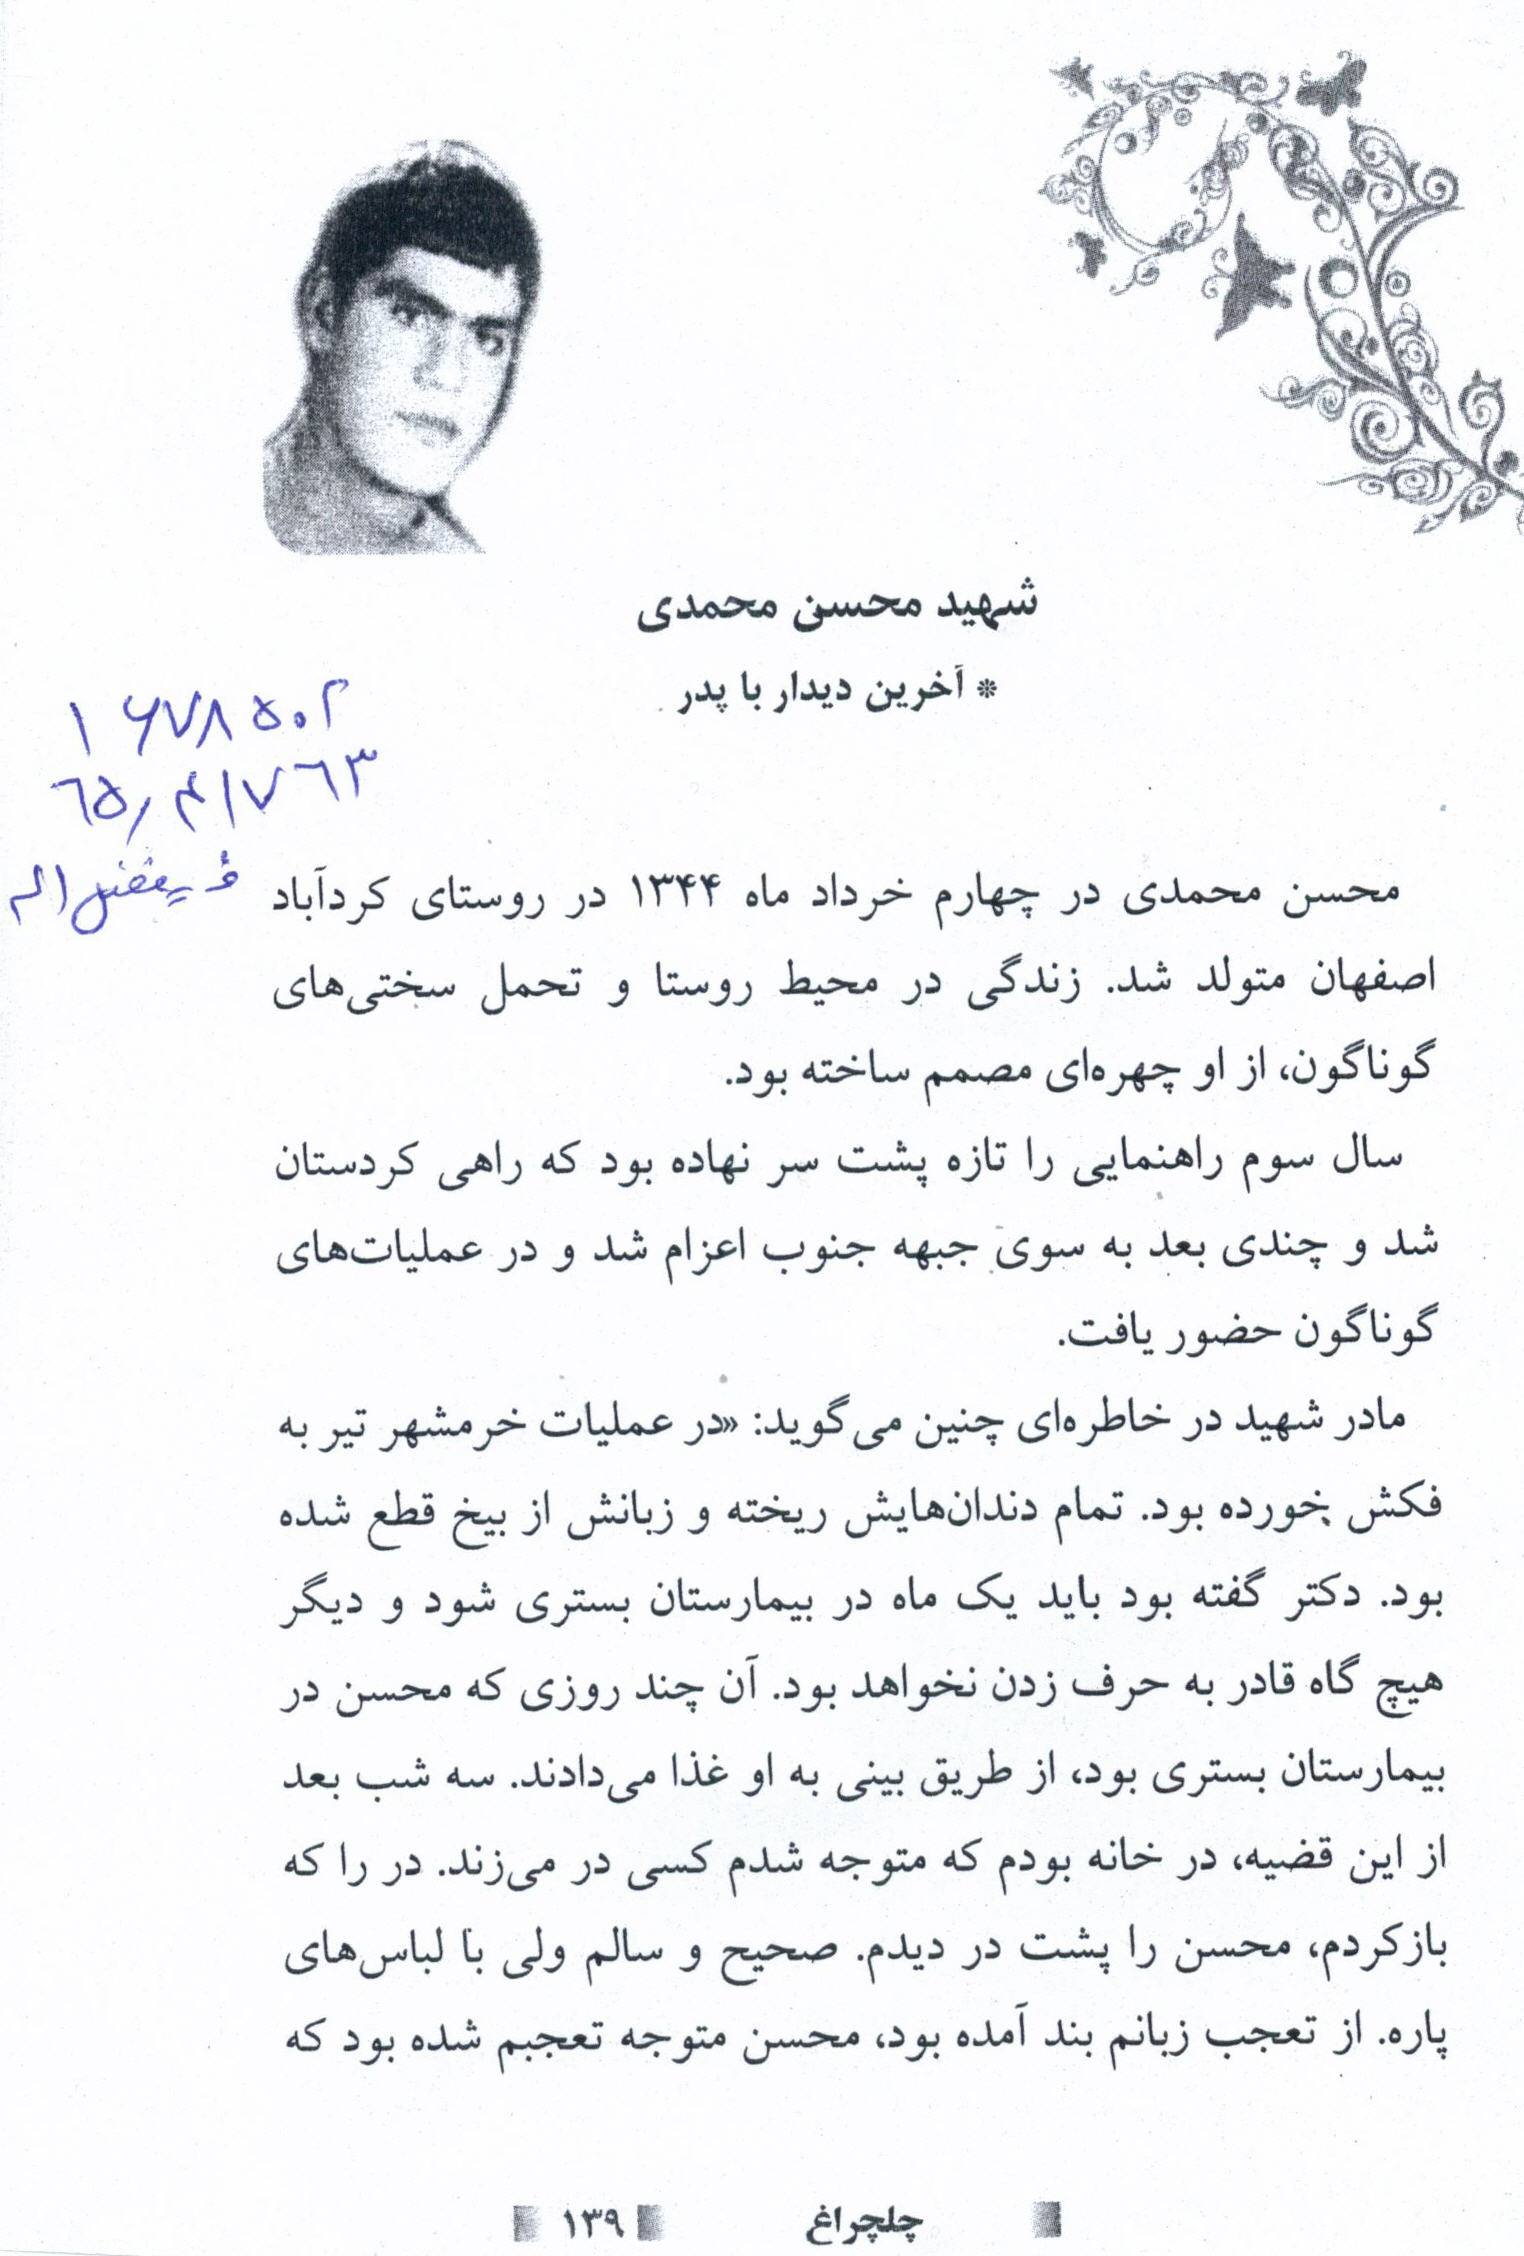 شهید محسن محمدی
* آخرین دیدار با پدر
۱۶۷۸۵۰۲
۶۵,۴۱۷۶۳
محسن محمدی در چهارم خرداد ماه ۱۳۴۴ در روستای کردآباد
اصفهان متولد شد. زندگی در محیط روستا و تحمل سختی‌های
گوناگون، از او چهره‌ای مصمم ساخته بود.
سال سوم راهنمایی را تازه پشت سر نهاده بود که راهی کردستان
شد و چندی بعد به سوی جبهه جنوب اعزام شد و در عملیات‌های
گوناگون حضور یافت.
مادر شهید در خاطره‌ای چنین می‌گوید: «در عملیات خرمشهر تیر به
فکش خورده بود. تمام دندان‌هایش ریخته و زبانش از بیخ قطع شده
بود. دکتر گفته بود باید یک ماه در بیمارستان بستری شود و دیگر
هیچ گاه قادر به حرف زدن نخواهد بود. آن چند روزی که محسن در
بیمارستان بستری بود، از طریق بینی به او غذا می‌دادند. سه شب بعد
از این قضیه، در خانه بودم که متوجه شدم کسی در می‌زند. در را که
بازکردم، محسن را پشت در دیدم. صحیح و سالم ولی با لباس‌های
پاره. از تعجب زبانم بند آمده بود، محسن متوجه تعجبم شده بود که
چلچراغ ۱۳۹